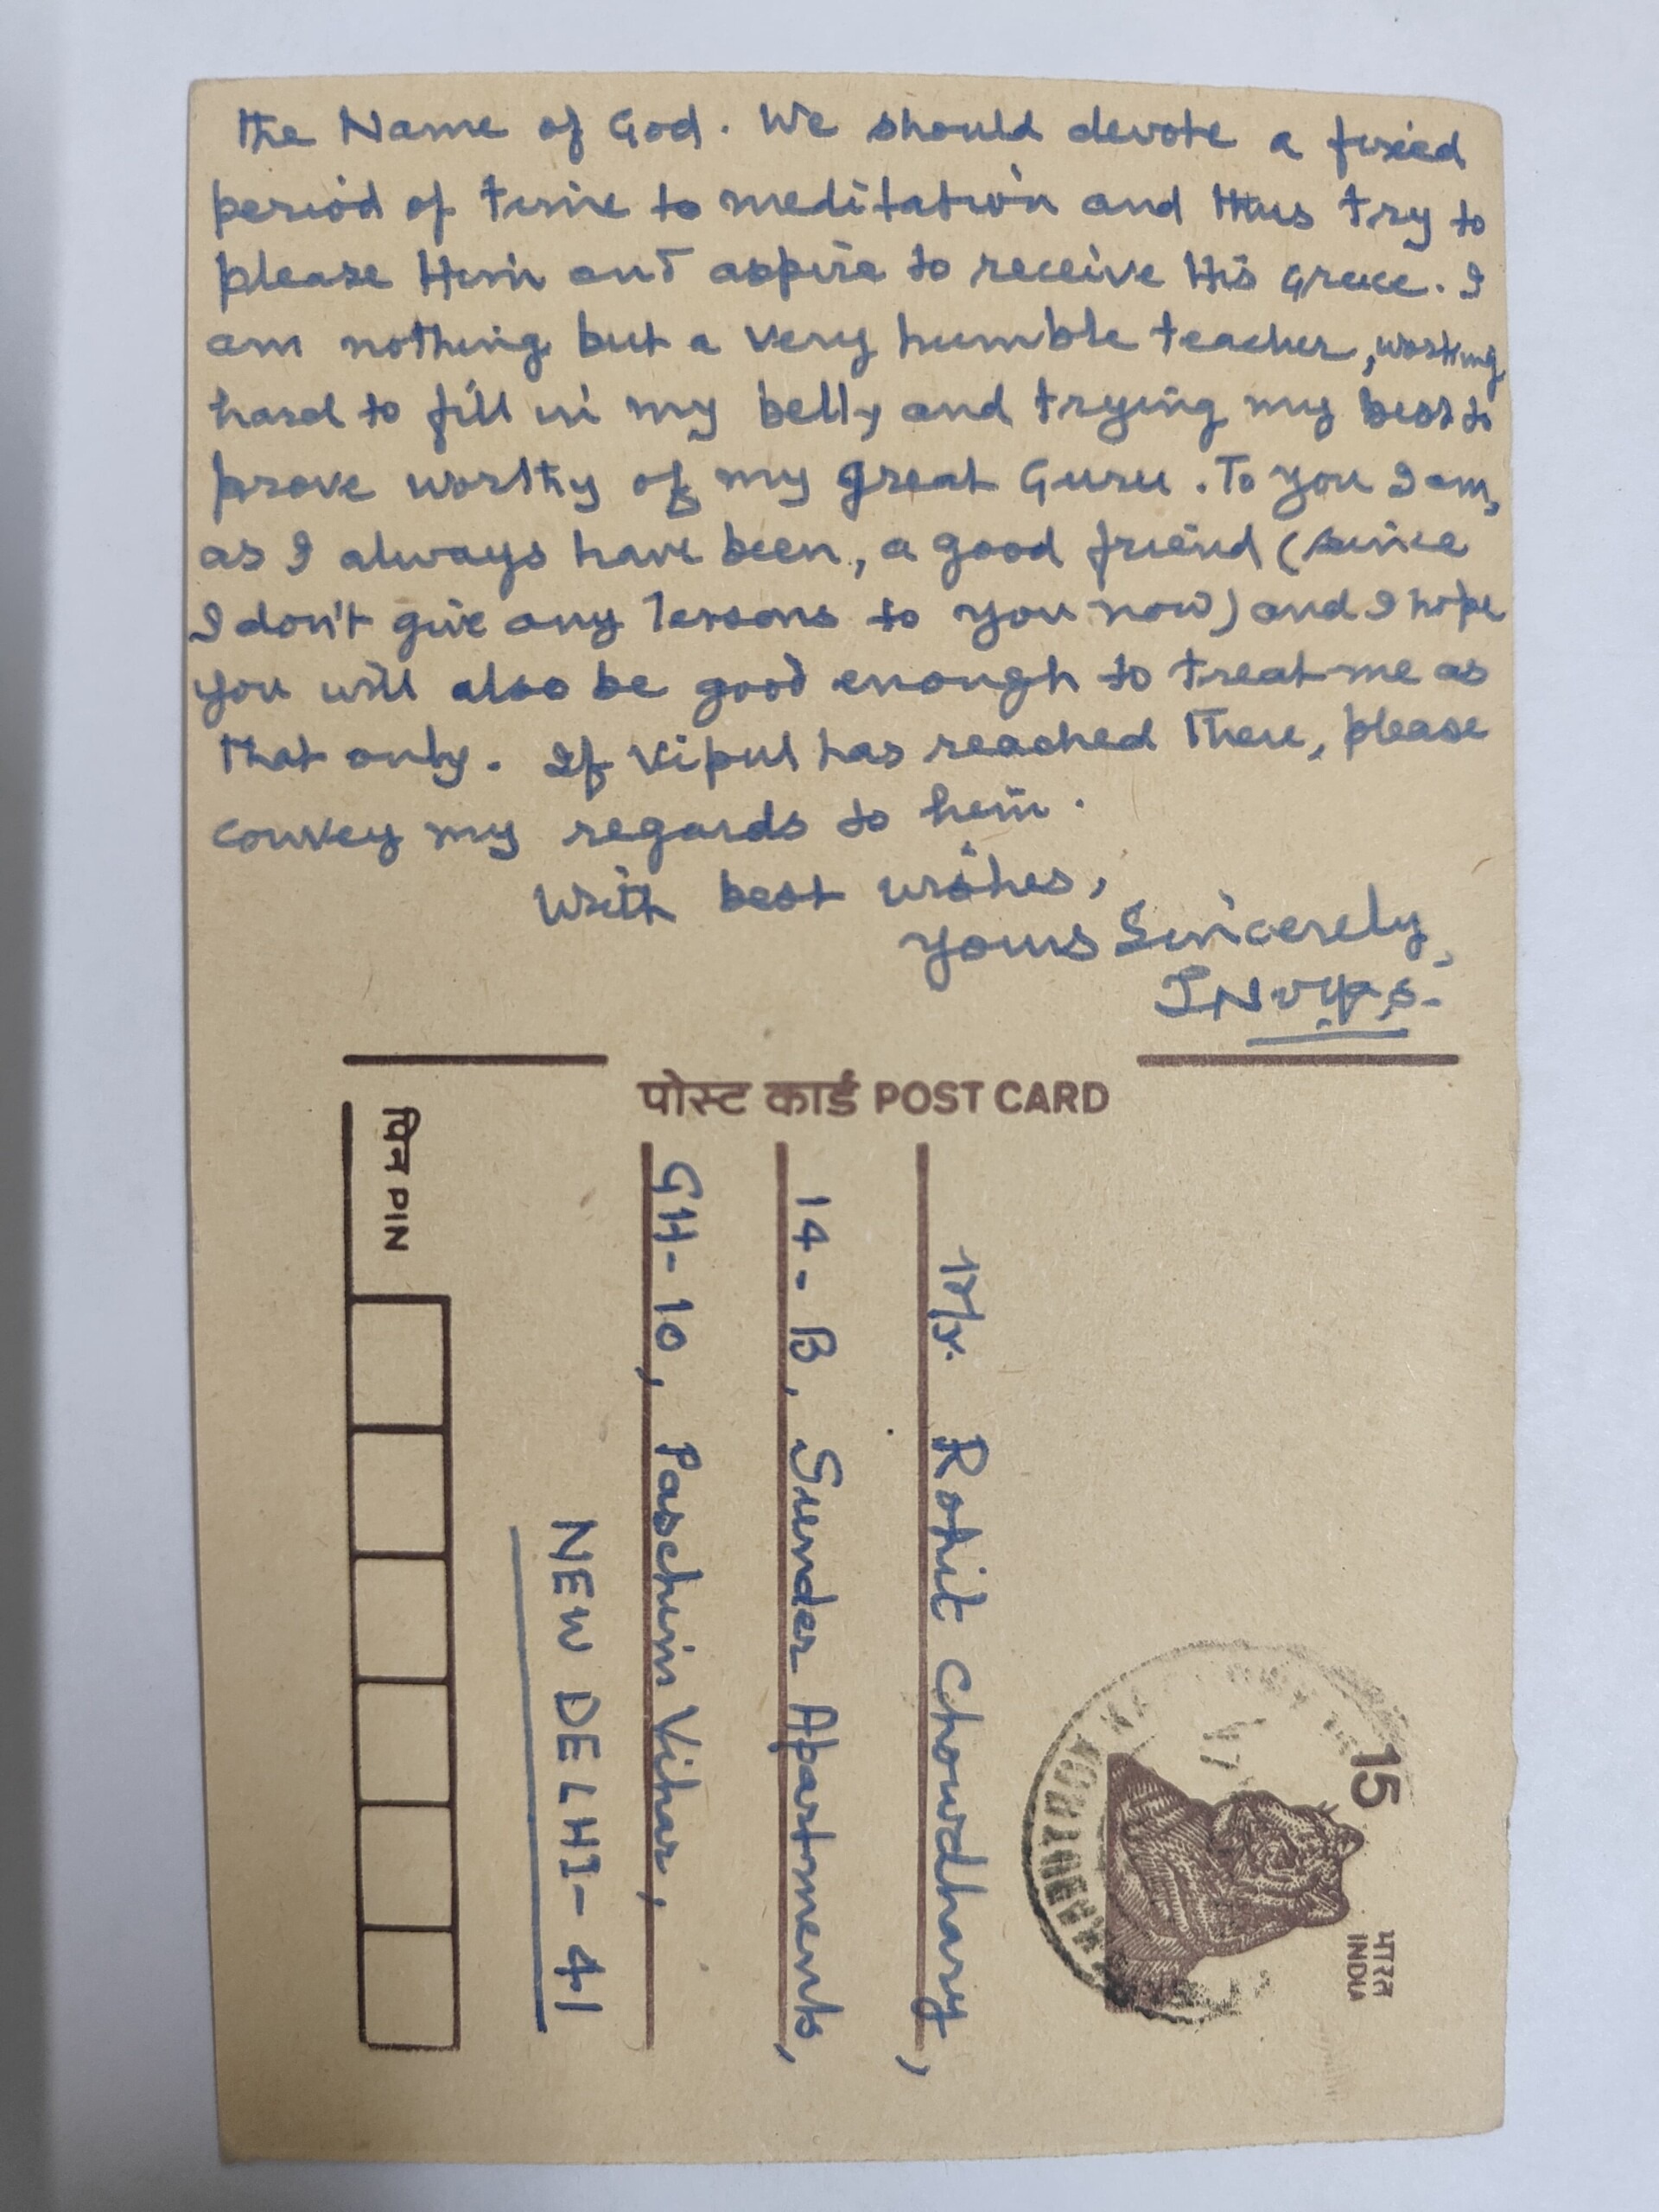 the Name of God. We should devote a fixed
period of time to meditation and thus try to
please Him and aspire to receive His Grace. I
am nothing but a very humble teacher, working
hard to fill in my belly and trying my best to
prove worthy of my great Guru. To you I am,
as I always have been, a good friend (since
I don't give any lessons to you now) and I hope
you will also be good enough to treat me as
that only. If Vipul has reached there, please
convey my regards to him.
With best wishes,
Yours Sincerely,
पोस्ट कार्ड POST CARD
15
भारत
INDIA
Rohit Chowdhary,
14-B, Sunder Apartments,
GH-10, Paschim Vihar,
NEW DELHI-41
पिन PIN